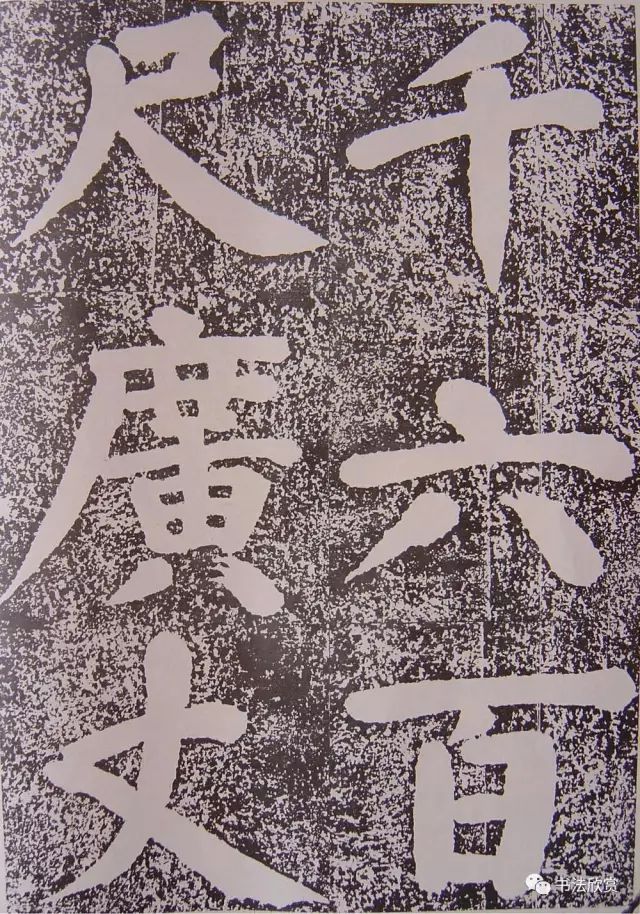 千六百
尺廣丈
书法欣赏